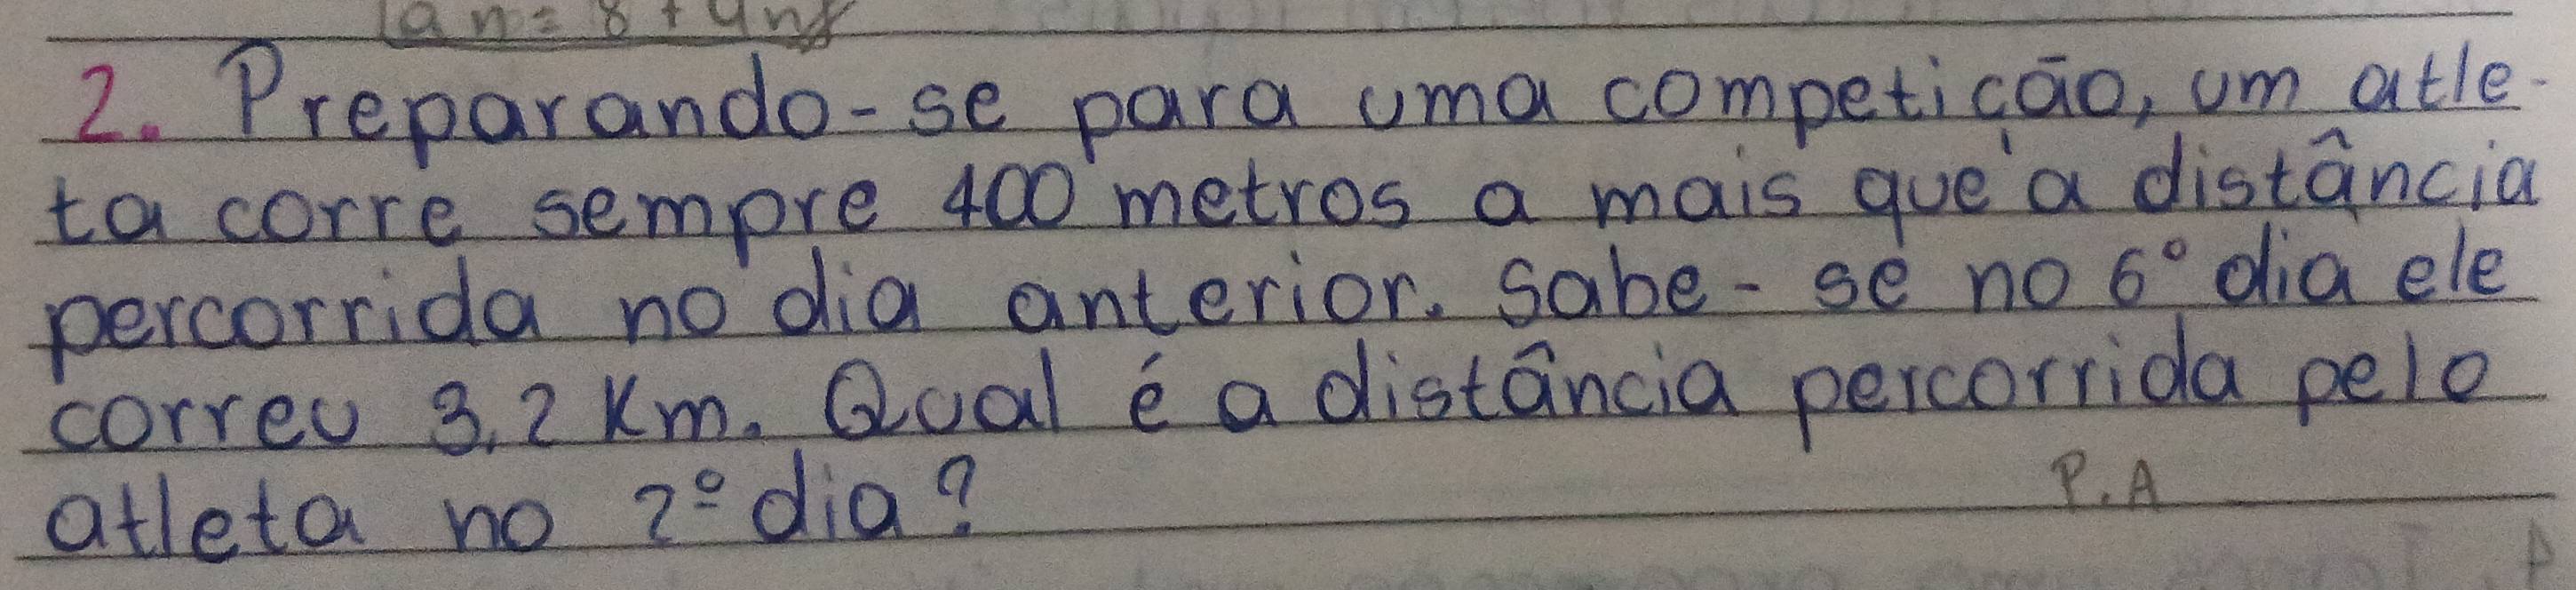 an = 8 + 4n
2. Preparando-se para uma competição, um atle-
ta corre sempre 400 metros a mais que a distância
percorrida no dia anterior. Sabe-se no 6º dia ele
correu 3,2 Km. Qual é a distância percorrida pelo
atleta no 2º dia?
P.A